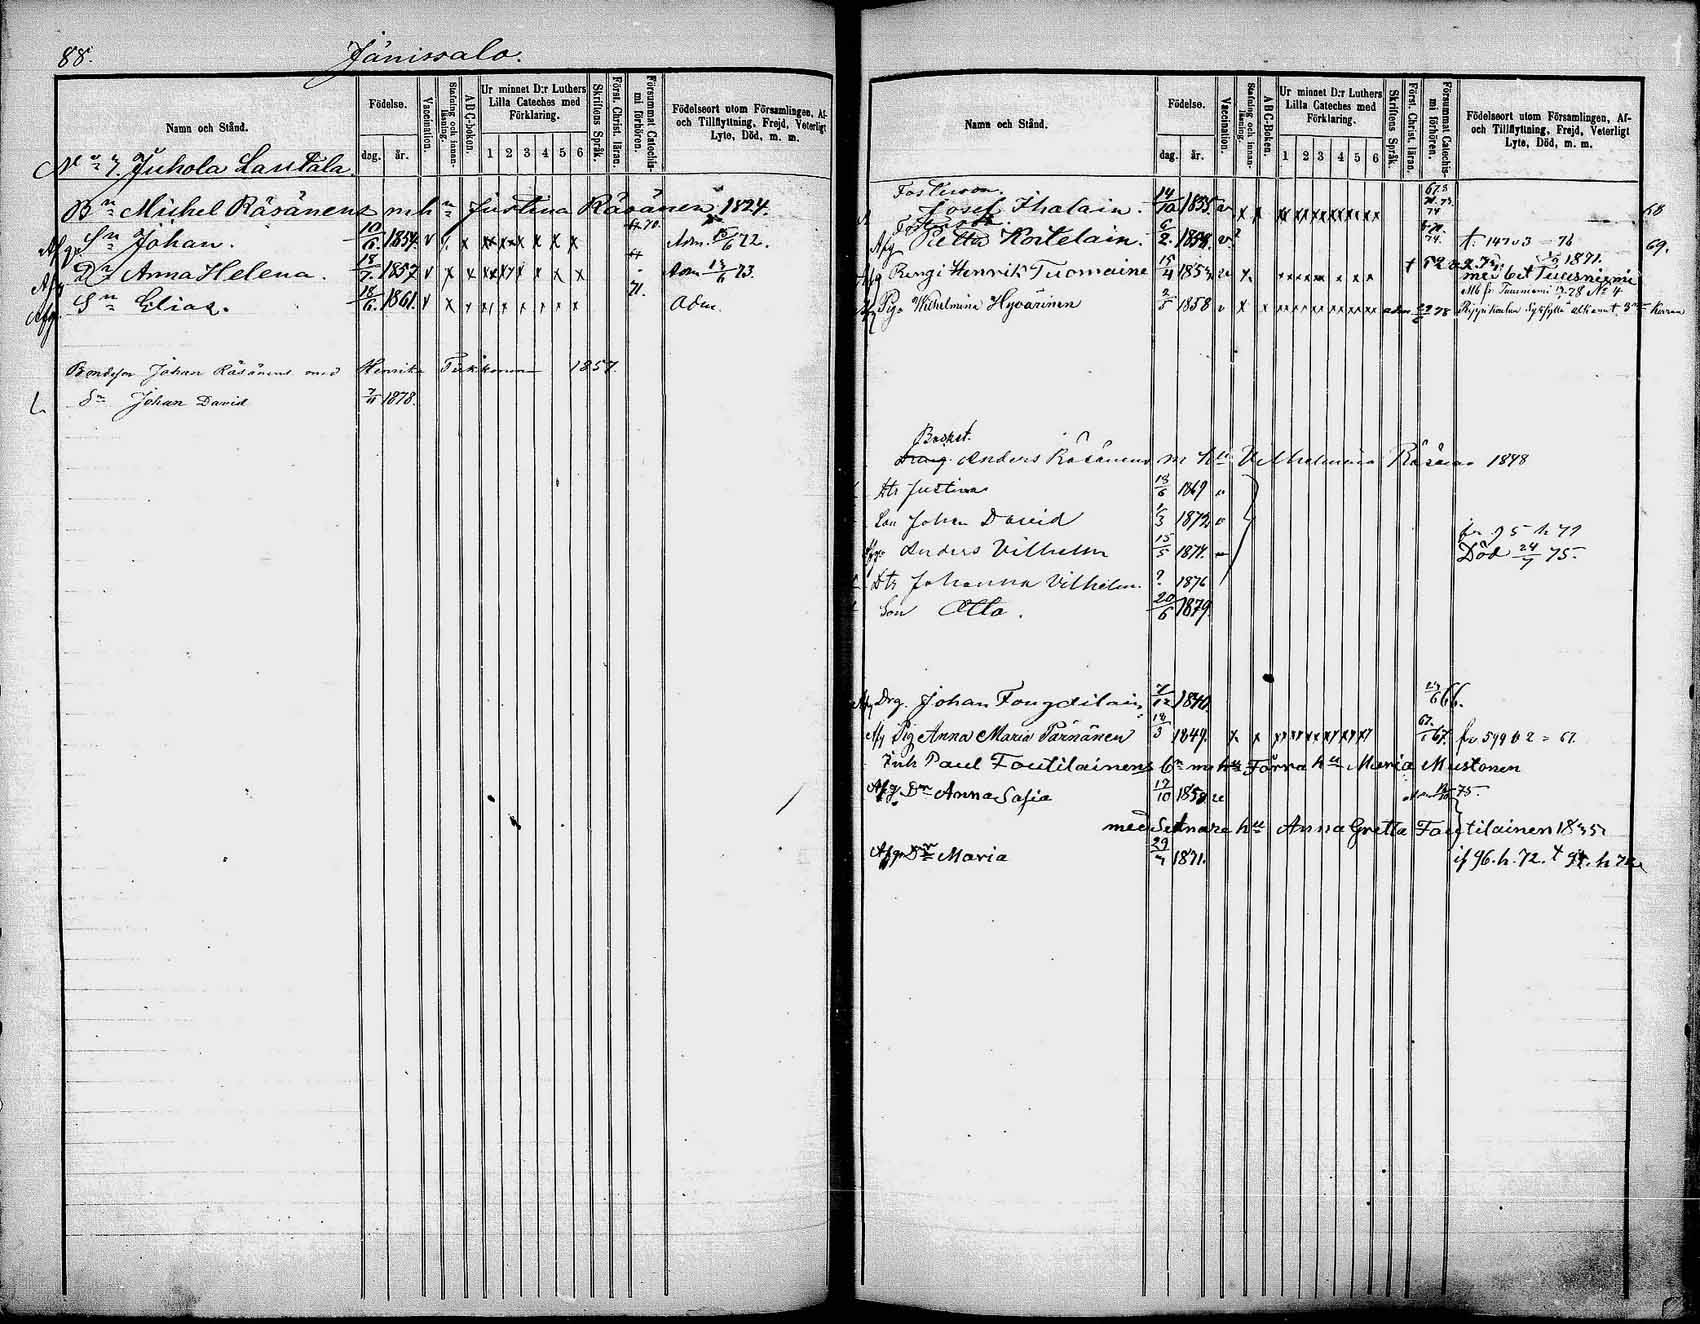 88.
Jänissalo.
Namn och Stånd.
Födelse.
dag. år.
Vaccination.
Stafning och innanläsning.
ABC-boken.
Ur minnet D:r Luthers Lilla Cateches med Förklaring.
1 2 3 4 5 6
Skriftens Språk.
Först. Christ. läran.
Försummat Catechismi förhören.
Födelseort utom Församlingen, Af- och Tillflyttning, Frejd, Veterligt Lyte, Död, m. m.
N:o 7. Juhola Lautala
Bn Michel Räsänens m h u Justina Räsänen 1824.
Afg. Sn Johan. 10/6 1854. v Adm. 72.
Afg Dr Anna Helena. 18/7 1857 v Adm 73.
Afg. Sn Elias. 18/6 1861. v 71. Adm.
Bondeson Johan Räsänens med Henrika Pirkkonen 1857.
Sn Johan David 7/11 1878.
Namn och Stånd.
Födelse.
dag. år.
Vaccination.
Stafning och innanläsning.
ABC-Boken.
Ur minnet D:r Luthers Lilla Cateches med Förklaring.
1 2 3 4 5 6
Skriftens Språk.
Först. Christ. läran.
Försummat Catechismi förhören.
Födelseort utom Församlingen, Af- och Tillflyttning, Frejd, Veterligt Lyte, Död, m. m.
Fosterson.
Josef Ihalain. 14/10 1855. 68
Afg Pietta Kortelain. 6/2 1858. v 74. 76 69.
1871.
Afg Pengi Henrik Tuomaine 15/4 med bet Tuusniemi
Mb fr. Tuusniemi 78 No 4
Afg Pig. Wilhelmina Hyvärinen 2/5 1858 v 78
Backst.
Drang. Anders Räsänens m hu Vilhelmina Räsänen 1848
Dtr Justina 18/6 1869
Son Johan David 1/3 1872
Afg. Anders Vilhelm 15/5 1874 Död 24/7 75.
Dtr Johanna Vilhelm. ? 1876
Son Otto. 20/6 1879.
Afg Drg. Johan Fougdilain 7/12 1840. 66.
Afg Pig Anna Maria Pärnänen 18/3 1849. 67. fr 599 b 2 = 67.
Inh Paul Foutilainens 6n m hu Förra hu Maria Mustonen
Afg Dr Anna Sofia 17/10 1858 75.
med Sednare hu Anna Gretta Foutilainen
Afg. Dr Maria 29/7 1871. if 96. h. 72.